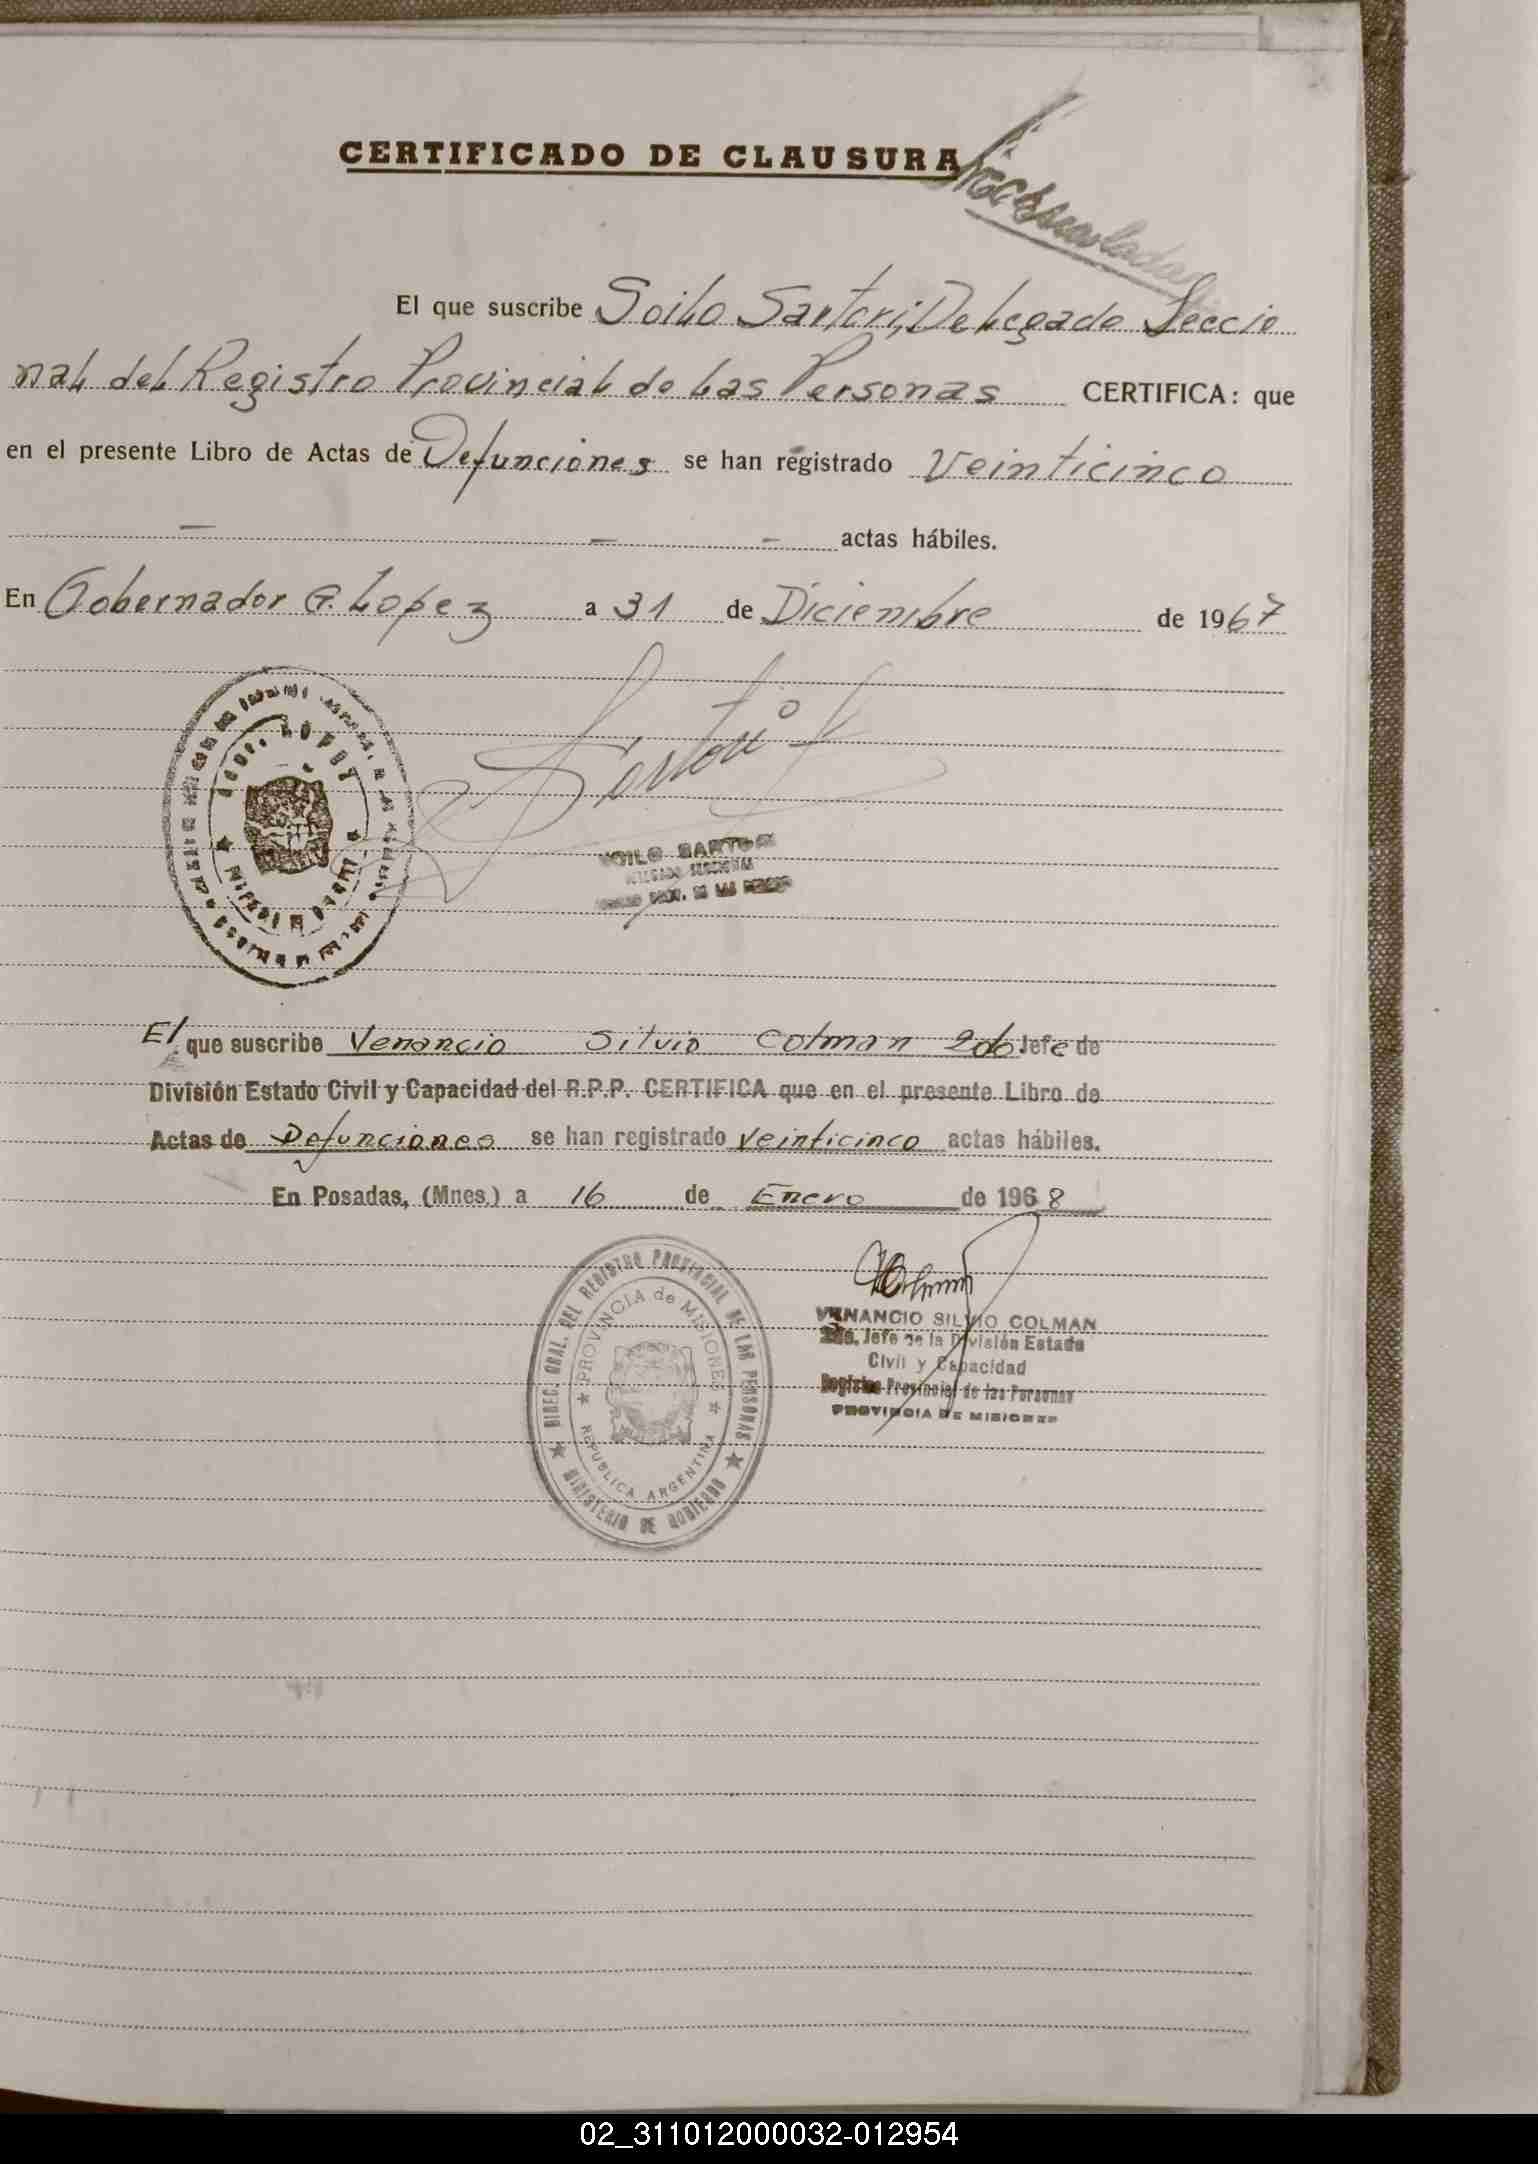 CERTIFICADO DE CLAUSURA
El que suscribe Soilo Sartori, Delegado Seccio
nal del Registro Provincial de las Personas CERTIFICA: que
en el presente Libro de Actas de Defunciones se han registrado Veinticinco
— — - actas hábiles.
En Gobernador G. Lopez a 31 de Diciembre de 1967
GDOR. LOPEZ
Sartori
SOILO SARTORI
DELEGADO SECCIONAL
PROV. DE LAS PERSONAS
El que suscribe Venancio Silvio Colman 2do Jefe de
División Estado Civil y Capacidad del R.P.P. CERTIFICA que en el presente Libro de
Actas de Defunciones se han registrado veinticinco actas hábiles.
En Posadas, (Mnes.) a 16 de Enero de 1968
DIREC. GRAL. DEL REGISTRO PROVINCIAL DE LAS PERSONAS
PROVINCIA de MISIONES
REPUBLICA ARGENTINA
MINISTERIO DE GOBIERNO
VENANCIO SILVIO COLMAN
2do. Jefe de la División Estado
Civil y Capacidad
Registro Provincial de las Personas
PROVINCIA DE MISIONES
02_311012000032-012954